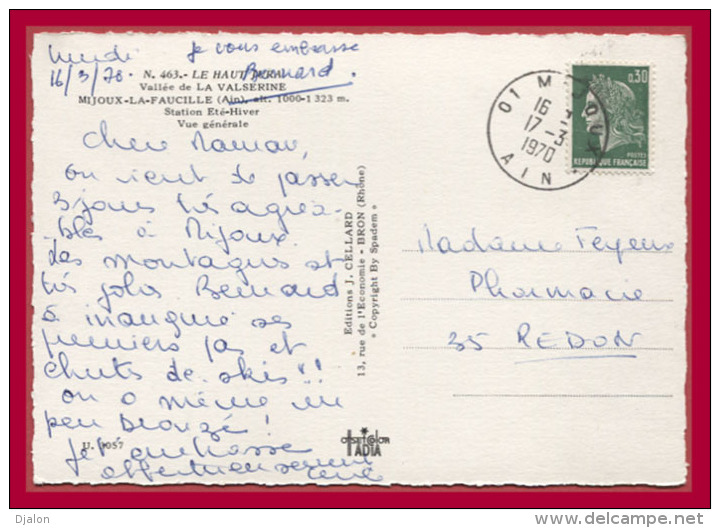 lundi
16/3/70
je vous embrasse
Bernard.
N. 463. - LE HAUT JURA
Vallée de LA VALSERINE
MIJOUX-LA-FAUCILLE (Ain), alt. 1000-1 323 m.
Station Eté-Hiver
Vue générale
Chere Maman,
on vient de passer
3 jours très agréa-
bles à Mijoux.
les montagnes est
très jolis Bernard
à inauguré ses
premiers pas et
chutes de skis!!
on a même un
peu bronzé!
Je t'embrasse
affectueusement
U. 1057
Editions J. CELLARD
13, rue de l'Economie - BRON (Rhône)
« Copyright By Spadem »
offset color
IADIA
01 MIJOUX
16
17-3
1970
AIN
0,30
POSTES
REPUBLIQUE FRANÇAISE
Madame
Pharmacie
35 REDON
Djalon
www.delcampe.net